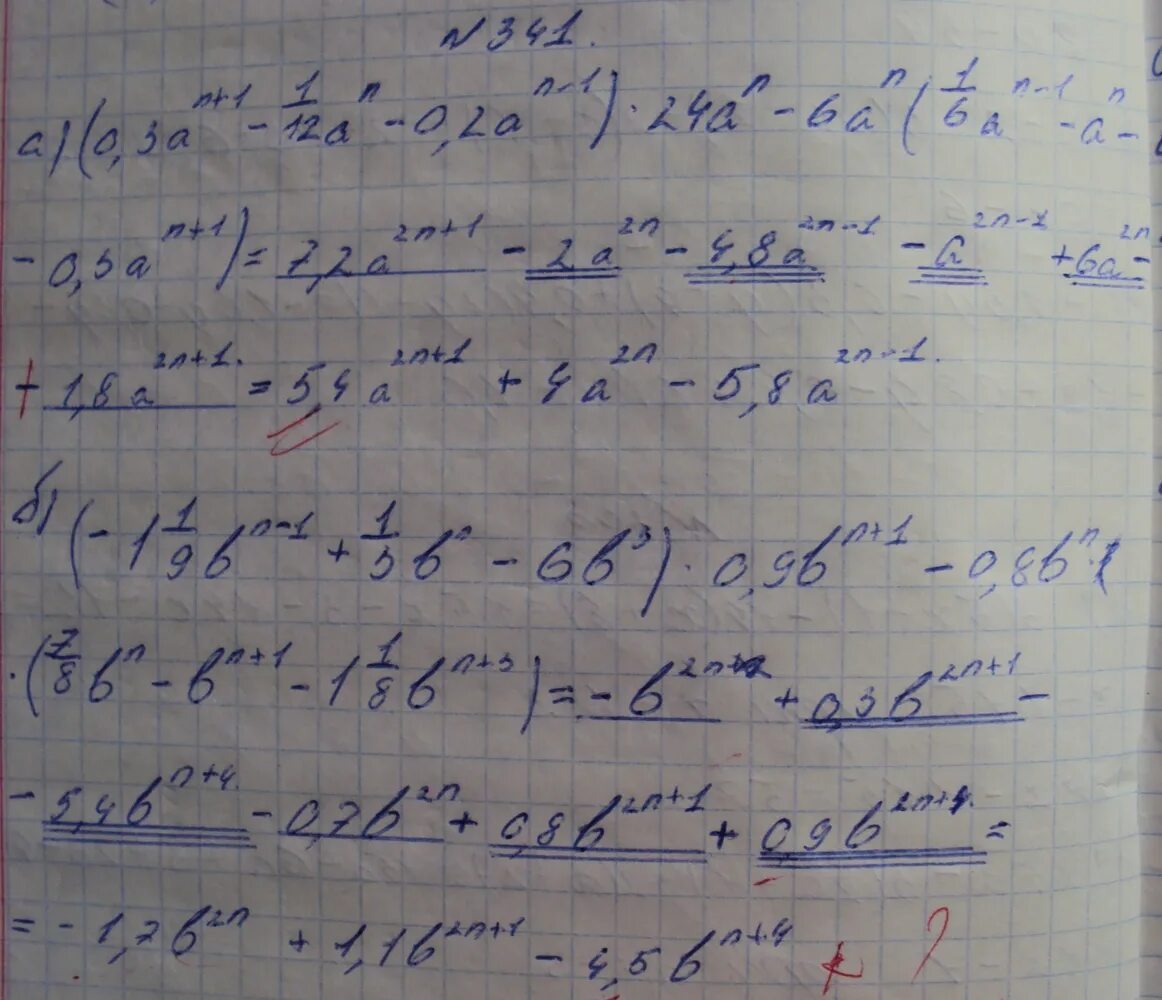 №341.
а) (0,3a^{n+1} - \frac{1}{12}a^n - 0,2a^{n-1}) · 24a^n - 6a^n (\frac{1}{6}a^{n-1} - a^n -
- 0,3a^{n+1}) = 7,2a^{2n+1} - 2a^{2n} - 4,8a^{2n-1} - a^{2n-1} + 6a^{2n} -
+ 1,8a^{2n+1} = 5,4a^{2n+1} + 4a^{2n} - 5,8a^{2n-1}.
б) (-1\frac{1}{9}b^{n-1} + \frac{1}{3}b^n - 6b^3) · 0,9b^{n+1} - 0,8b^n ·
· (\frac{7}{8}b^n - b^{n+1} - 1\frac{1}{8}b^{n+3}) = - b^{2n} + 0,3b^{2n+1} -
- 5,4b^{n+4} - 0,7b^{2n} + 0,8b^{2n+1} + 0,9b^{2n+4} =
= - 1,7b^{2n} + 1,1b^{2n+1} - 4,5b^{n+4} + ?